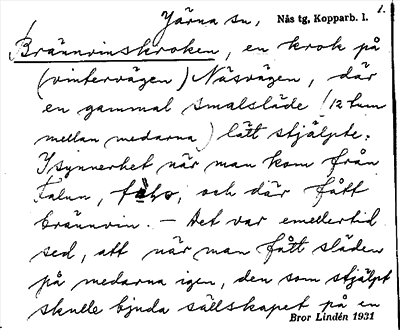 1.
Järna sn, Näs tg, Kopparb. l.
Brännvinskroken, en krok på
(vintervägen) Näsvägen, där
en gammal smalsläde (12 tum
mellan medarna) lätt stjälpte.
Isynnerhet när man kom från
Falun, och där fått
brännvin. — Det var emellertid
sed, att när man fått släden
på medarna igen, den som stjälpt
skulle bjuda sällskapet på en
Bror Lindén 1931